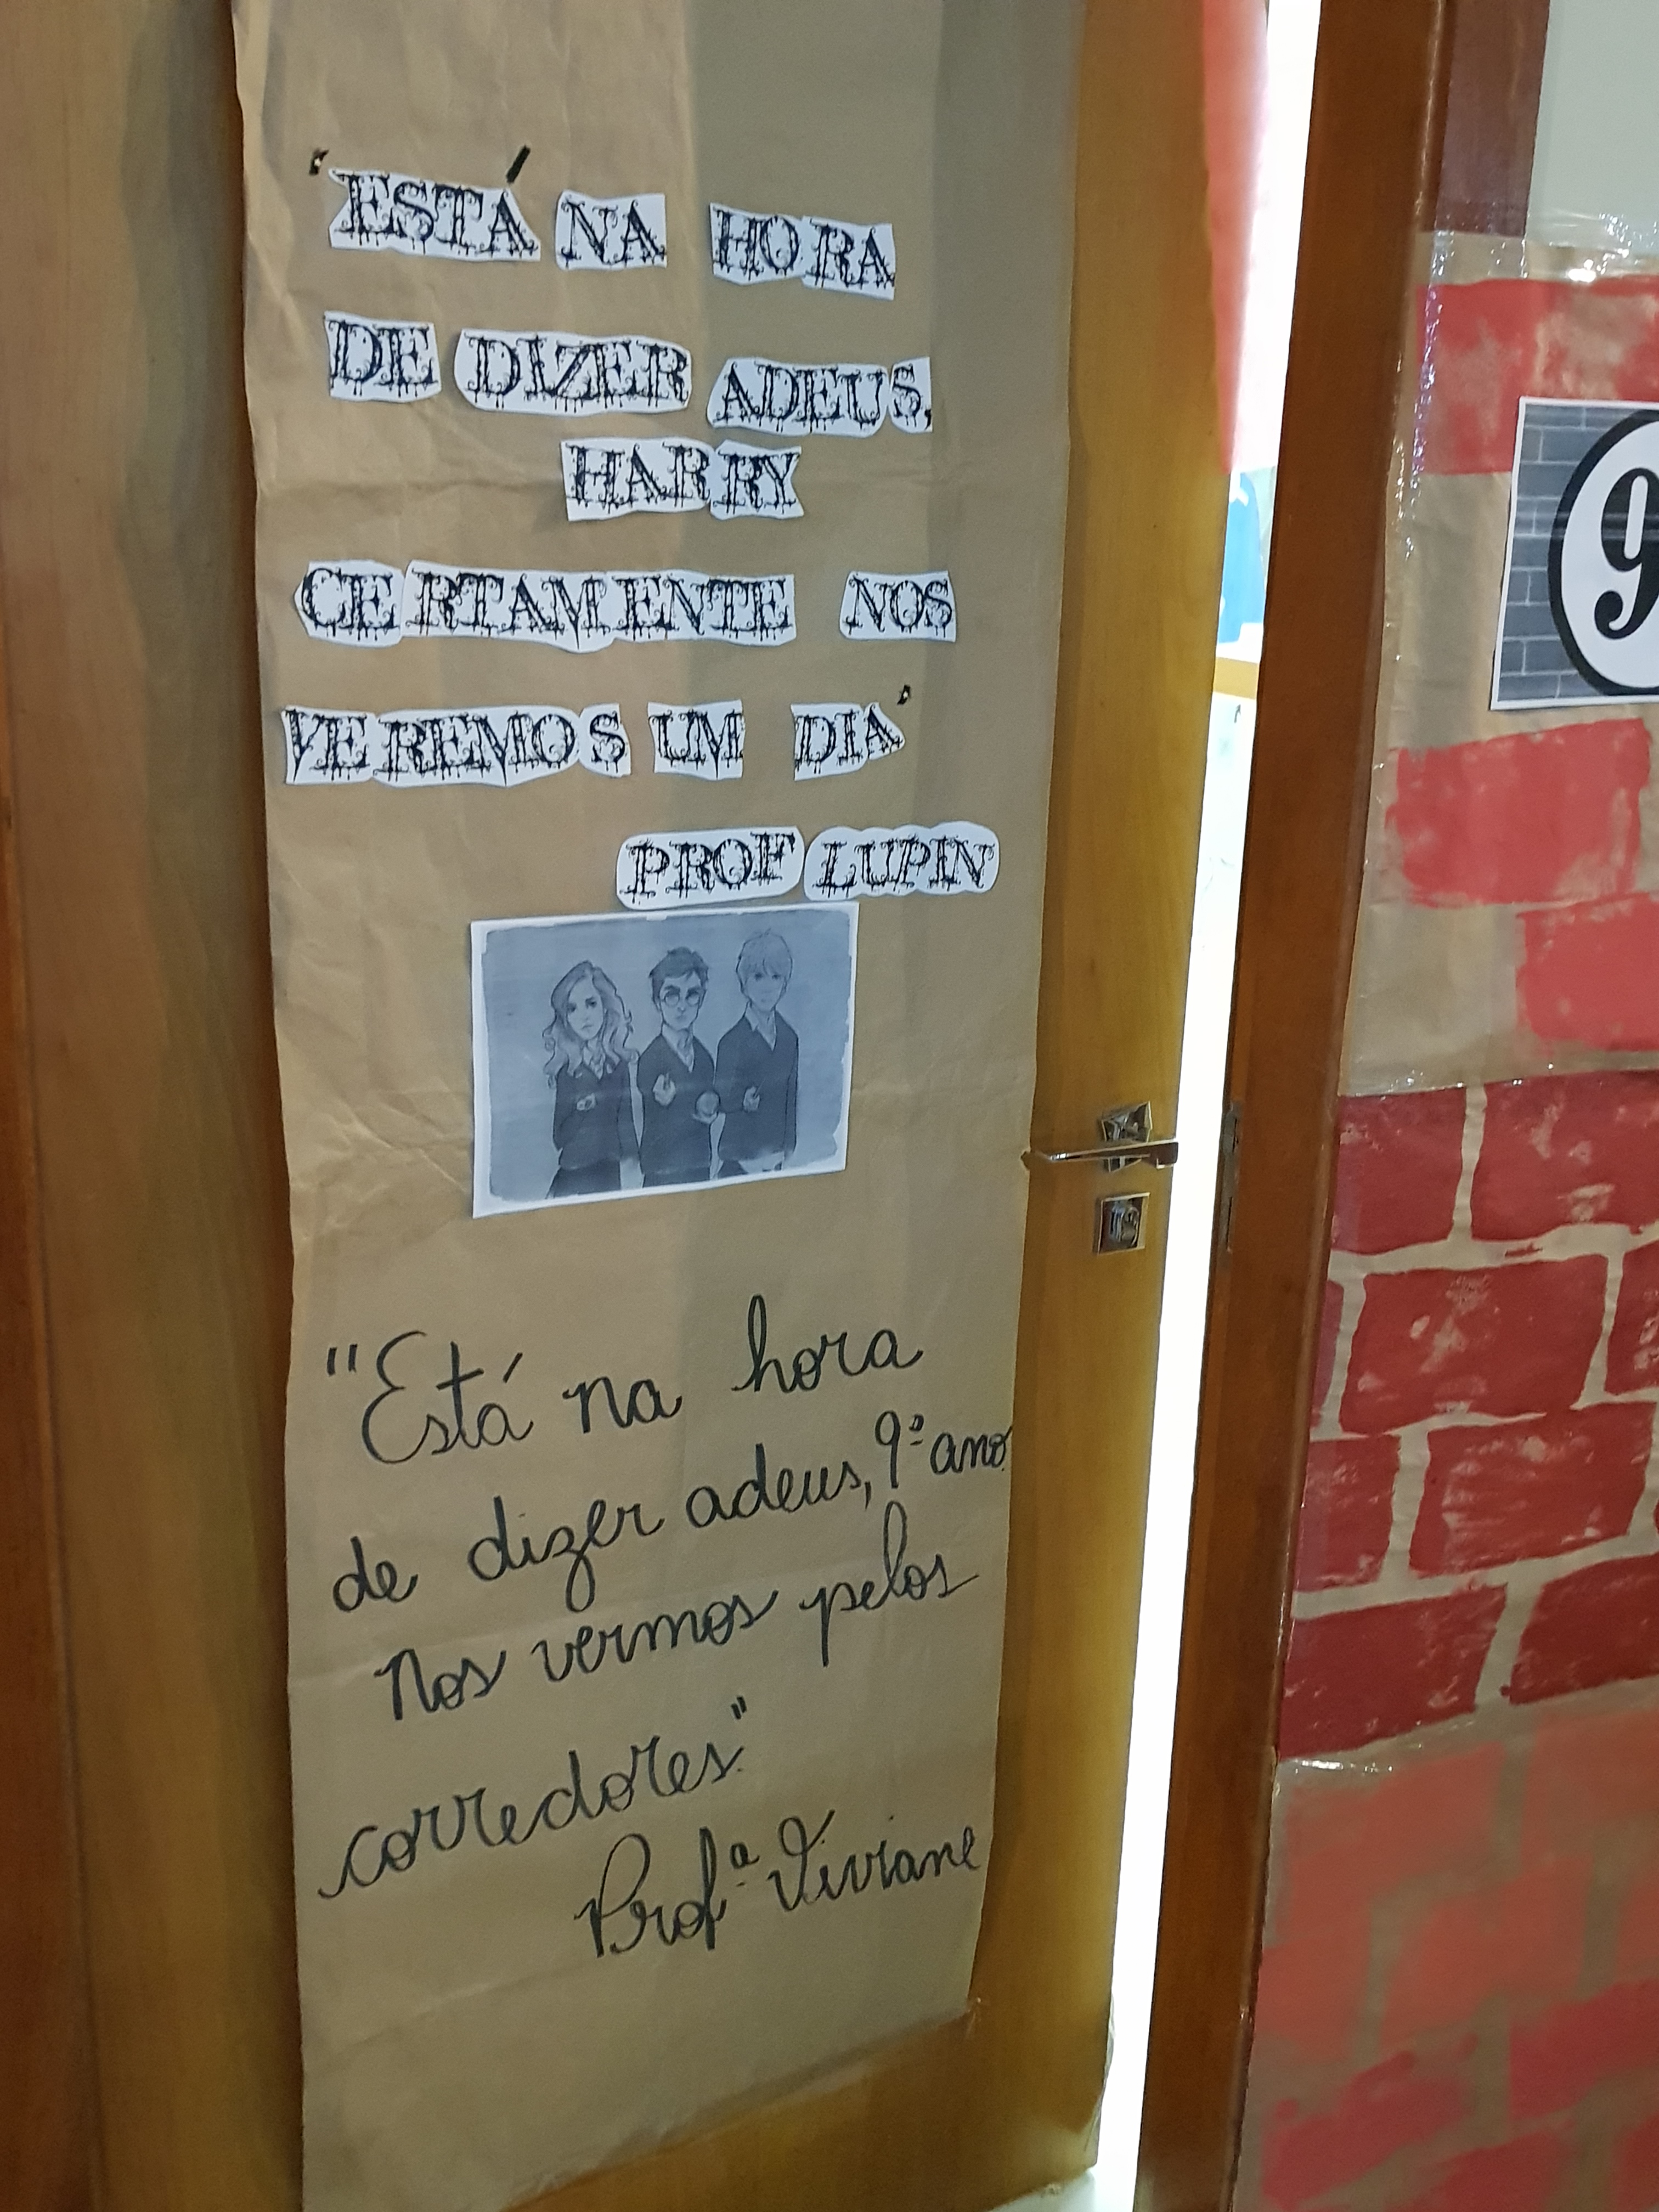 'ESTÁ NA HORA
DE DIZER ADEUS,
HARRY
CERTAMENTE NOS
VEREMOS UM DIA'
PROF LUPIN
"Está na hora
de dizer adeus, 9º ano.
Nos vermos pelos
corredores."
Profª Viviane
9